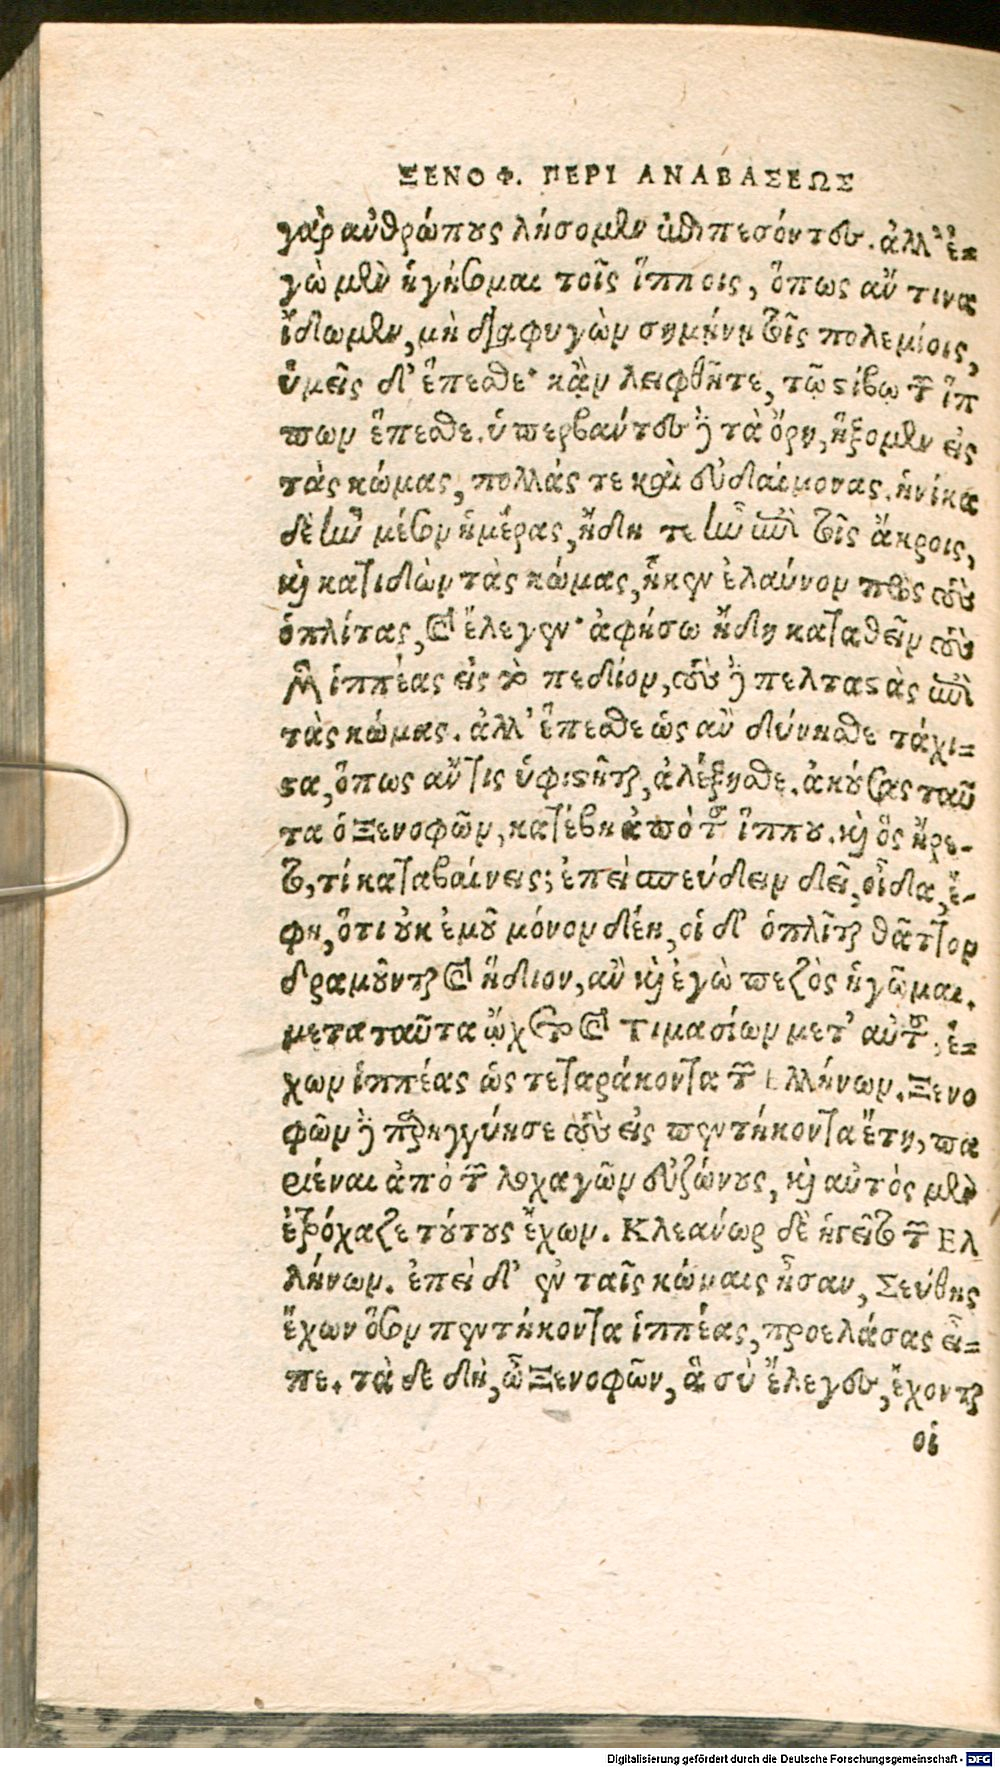 ΞΕΝΟΦ. ΠΕΡΙ ΑΝΑΒΑΣΕΩΣ
γὰρ ἀνθρώπους λήσομεν ἐπιπεσόντες. ἀλλ' ἐ-
γὼ μὲν ἡγήσομαι τοῖς ἵπποις, ὅπως ἄν τινα
ἴδωμεν, μὴ διαφυγὼν σημήνῃ τοῖς πολεμίοις,
ὑμεῖς δ' ἕπεσθε· κἂν λειφθῆτε, τῷ στίβῳ τῶν ἵπ
πων ἕπεσθε. ὑπερβάντες δὲ τὰ ὄρη, ἥξομεν εἰς
τὰς κώμας, πολλάς τε καὶ εὐδαίμονας. ἡνίκα
δὲ ἦν μέσον ἡμέρας, ἤδη τε ἦν ἐπὶ τοῖς ἄκροις,
καὶ κατιδὼν τὰς κώμας, ἧκεν ἐλαύνων πρὸς τοὺς
ὁπλίτας, καὶ ἔλεγεν· ἀφήσω ἤδη καταθεῖν τοὺς
μὲν ἱππέας εἰς τὸ πεδίον, τοὺς δὲ πελταστὰς ἐπὶ
τὰς κώμας. ἀλλ' ἕπεσθε ὡς ἂν δύνησθε τάχι-
στα, ὅπως ἄν τις ὑφιστῆται, ἀλέξησθε. ἀκούσας ταῦ
τα ὁ Ξενοφῶν, κατέβη ἀπὸ τοῦ ἵππου. καὶ ὃς ἤρε-
το, τί καταβαίνεις; ἐπεὶ σπεύδειν δεῖ, οἶδα, ἔ-
φη, ὅτι οὐκ ἐμοῦ μόνον δέῃ, οἱ δ' ὁπλῖται θᾶττον
δραμοῦνται καὶ ἥδιον, ἂν καὶ ἐγὼ πεζὸς ἡγῶμαι.
μετα ταῦτα ᾤχετο καὶ Τιμασίων μετ' αὐτοῦ, ἔ-
χων ἱππέας ὡς τετταράκοντα τῶν Ελλήνων. Ξενο
φῶν δὲ παρηγγύησε τοὺς εἰς πεντήκοντα ἔτη, πα
ριέναι ἀπὸ τῶν λοχαγῶν εὐζώνους, καὶ αὐτὸς μὲν
ἐτρόχαζε τούτους ἔχων. Κλεάνωρ δὲ ἡγεῖτο τῶν Ελ
λήνων. ἐπεὶ δ' ἐν ταῖς κώμαις ἦσαν, Σεύθης
ἔχων ὅσον πεντήκοντα ἱππέας, προελάσας εἶ-
πε. τὰ δε δὴ, ὦ Ξενοφῶν, ἃ σὺ ἔλεγες, ἔχονται
οἱ
Digitalisierung gefördert durch die Deutsche Forschungsgemeinschaft - DFG